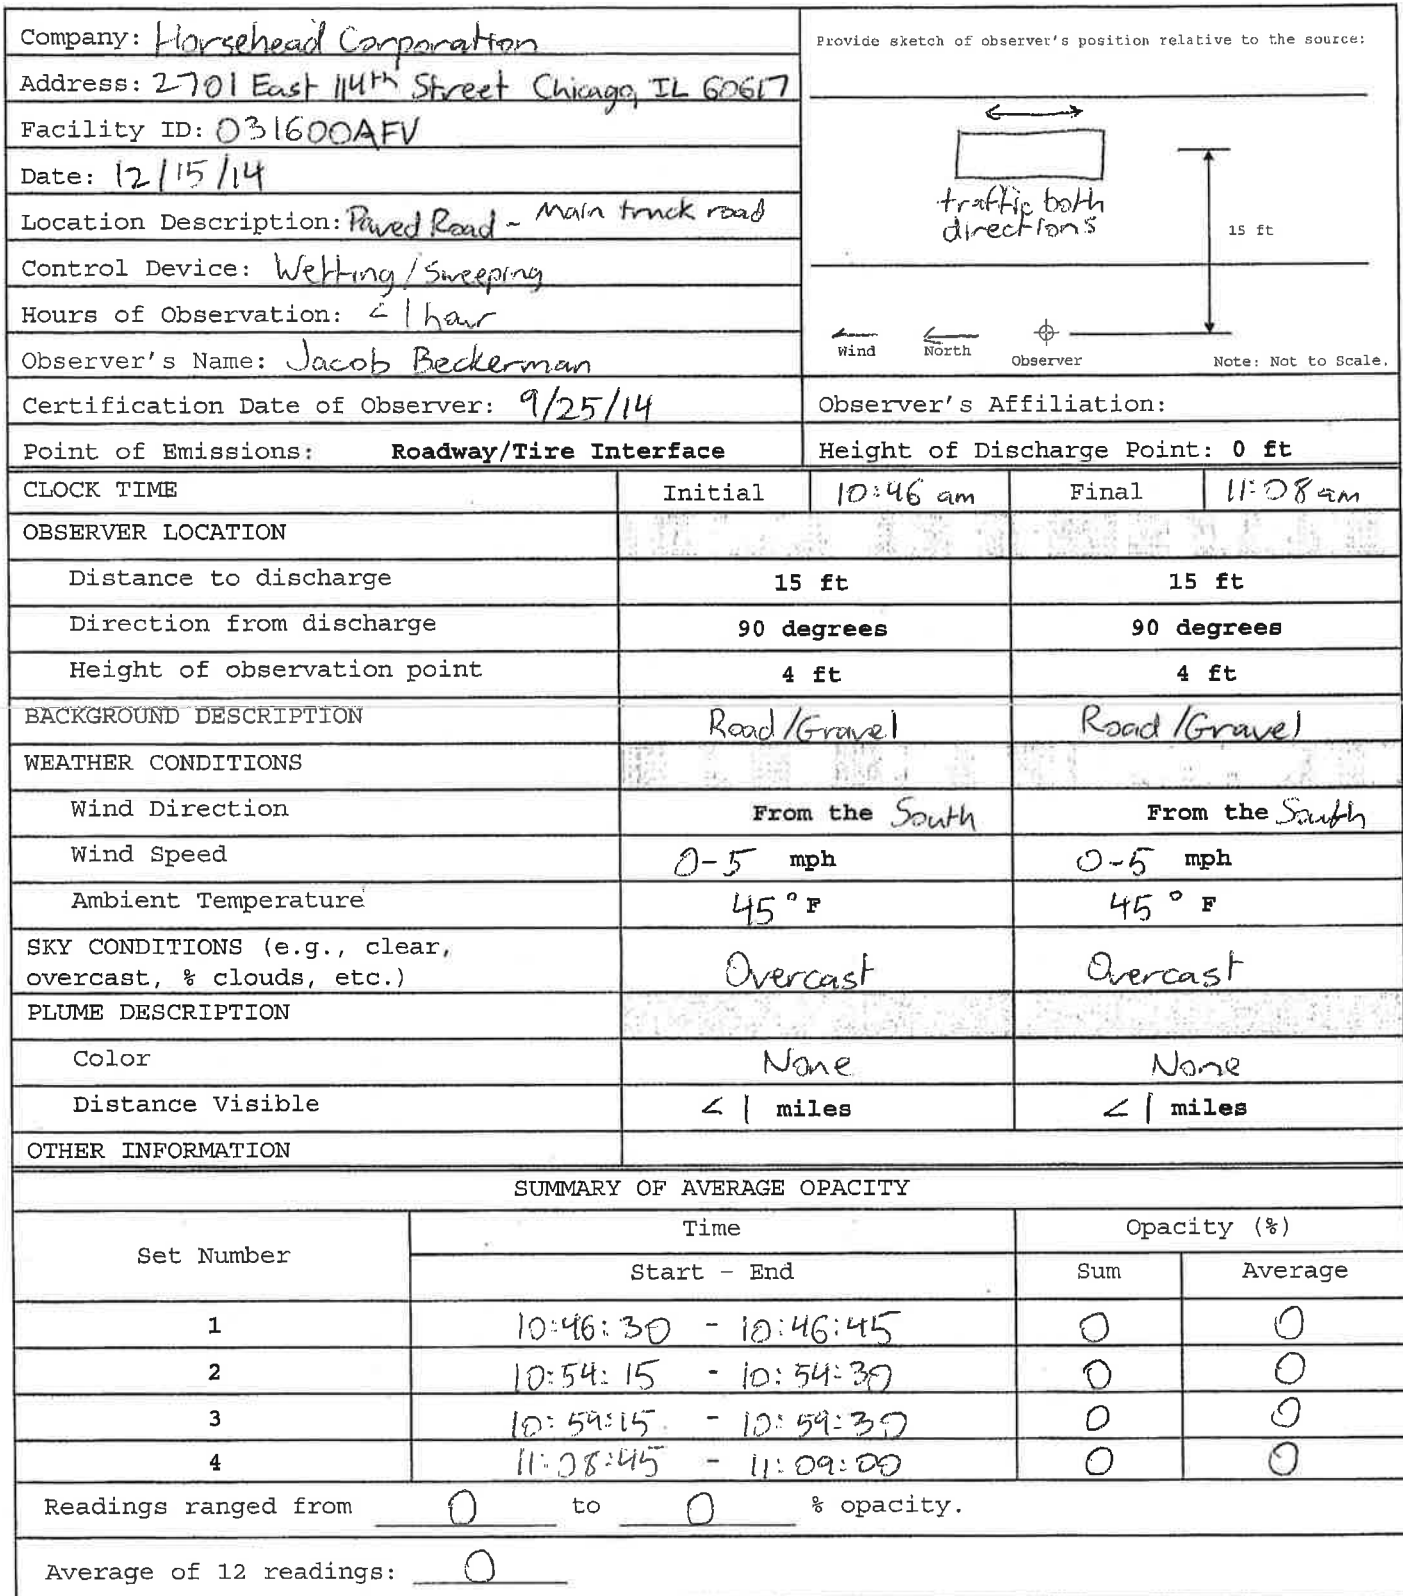 Company: Horsehead Corporation
Address: 2701 East 114th Street Chicago, IL 60617
Facility ID: 031600AFV
Date: 12/15/14
Location Description: Paved Road - Main truck road
Control Device: Wetting/Sweeping
Hours of Observation: < 1 hour
Observer's Name: Jacob Beckerman
Certification Date of Observer: 9/25/14
Point of Emissions: Roadway/Tire Interface
Provide sketch of observer's position relative to the source:
traffic both
directions
15 ft
Wind North Observer Note: Not to Scale.
Observer's Affiliation:
Height of Discharge Point: 0 ft
CLOCK TIME Initial 10:46 am Final 11:08 am
OBSERVER LOCATION
Distance to discharge 15 ft 15 ft
Direction from discharge 90 degrees 90 degrees
Height of observation point 4 ft 4 ft
BACKGROUND DESCRIPTION Road/Gravel Road/Gravel
WEATHER CONDITIONS
Wind Direction From the South From the South
Wind Speed 0-5 mph 0-5 mph
Ambient Temperature 45° F 45° F
SKY CONDITIONS (e.g., clear,
overcast, % clouds, etc.) Overcast Overcast
PLUME DESCRIPTION
Color None None
Distance Visible < 1 miles < 1 miles
OTHER INFORMATION
SUMMARY OF AVERAGE OPACITY
Set Number Time Opacity (%)
Start - End Sum Average
1 10:46:30 - 10:46:45 0 0
2 10:54:15 - 10:54:30 0 0
3 10:59:15 - 10:59:30 0 0
4 11:08:45 - 11:09:00 0 0
Readings ranged from 0 to 0 % opacity.
Average of 12 readings: 0